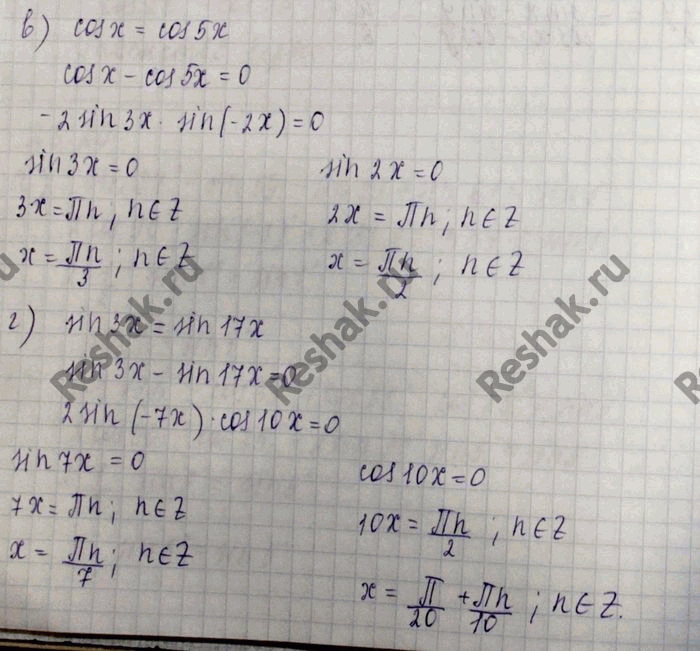 в) cos x = cos 5x
cos x - cos 5x = 0
-2 sin 3x · sin(-2x) = 0
sin 3x = 0
3x = Пn, n∈Z
x = Пn/3 ; n∈Z
sin 2x = 0
2x = Пn; n∈Z
x = Пn/2 ; n∈Z
г) sin 3x = sin 17x
sin 3x - sin 17x = 0
2 sin (-7x) · cos 10x = 0
sin 7x = 0
7x = Пn; n∈Z
x = Пn/7 ; n∈Z
cos 10x = 0
10x = Пn/2 ; n∈Z
x = П/20 + Пn/10 ; n∈Z.
Reshak.ru
Reshak.ru
Reshak.ru